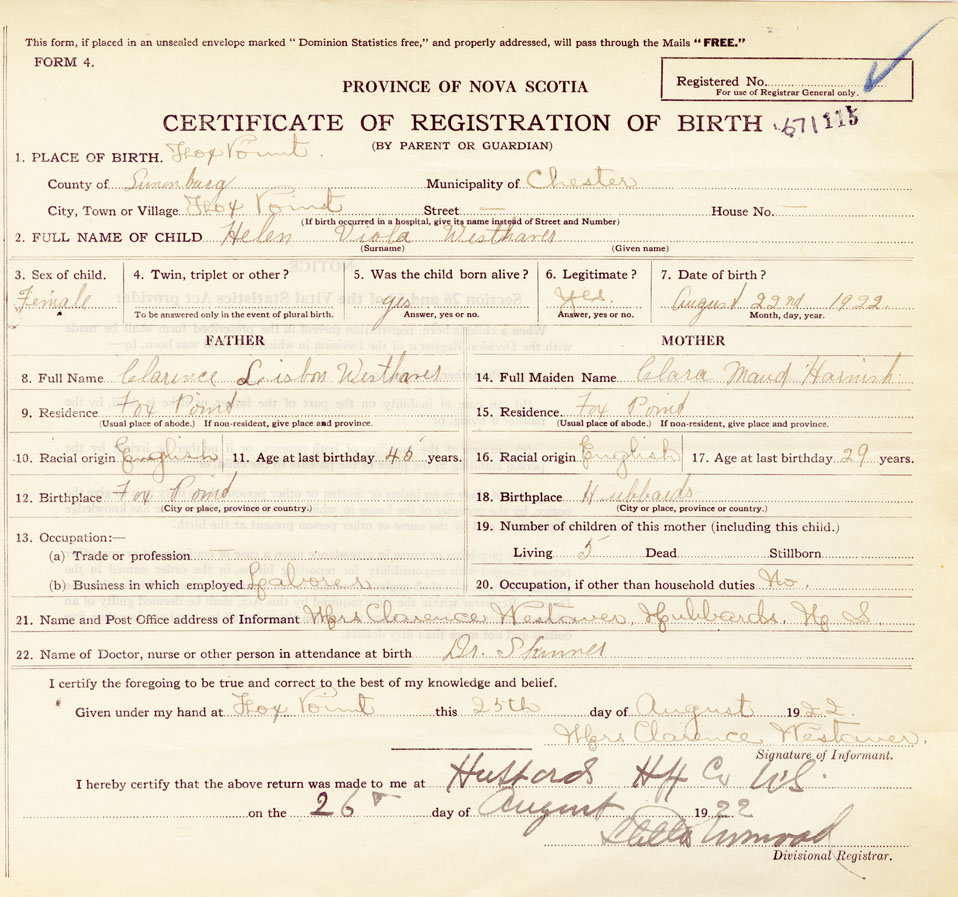 This form, if placed in an unsealed envelope marked " Dominion Statistics free," and properly addressed, will pass through the Mails "FREE."
FORM 4.
Registered No.
For use of Registrar General only.
PROVINCE OF NOVA SCOTIA
CERTIFICATE OF REGISTRATION OF BIRTH 671115
(BY PARENT OR GUARDIAN)
1. PLACE OF BIRTH. Fox Point.
County of Lunenburg Municipality of Chester
City, Town or Village Fox Point Street — House No. —
(If birth occurred in a hospital, give its name instead of Street and Number)
2. FULL NAME OF CHILD Helen Viola Westhaver
(Surname) (Given name)
3. Sex of child. 4. Twin, triplet or other? 5. Was the child born alive? 6. Legitimate? 7. Date of birth?
Female yes Yes. August 22nd 1922.
To be answered only in the event of plural birth. Answer, yes or no. Answer, yes or no. Month, day, year.
FATHER MOTHER
8. Full Name Clarence Lisbon Westhaver 14. Full Maiden Name Clara Maud Harnish
9. Residence Fox Point 15. Residence. Fox Point
(Usual place of abode.) If non-resident, give place and province. (Usual place of abode.) If non-resident, give place and province.
10. Racial origin English 11. Age at last birthday 45 years. 16. Racial origin English 17. Age at last birthday 29 years.
12. Birthplace Fox Point 18. Birthplace Hubbards
(City or place, province or country.) (City or place, province or country.)
13. Occupation:— 19. Number of children of this mother (including this child.)
(a) Trade or profession — Living 5 Dead Stillborn
(b) Business in which employed Laborer 20. Occupation, if other than household duties No.
21. Name and Post Office address of Informant Mrs Clarence Westaver, Hubbards, N. S.
22. Name of Doctor, nurse or other person in attendance at birth Dr. Skinner
I certify the foregoing to be true and correct to the best of my knowledge and belief.
Given under my hand at Fox Point this 25th day of August 1922.
Mrs Clarence Westaver.
Signature of Informant.
I hereby certify that the above return was made to me at Hubbards Hfx Co NS.
on the 26 day of August 1922
Divisional Registrar.